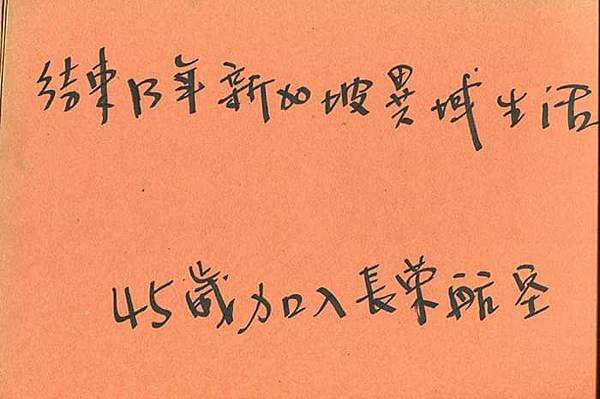 結束13年新加坡異域生活
45歲加入長榮航空